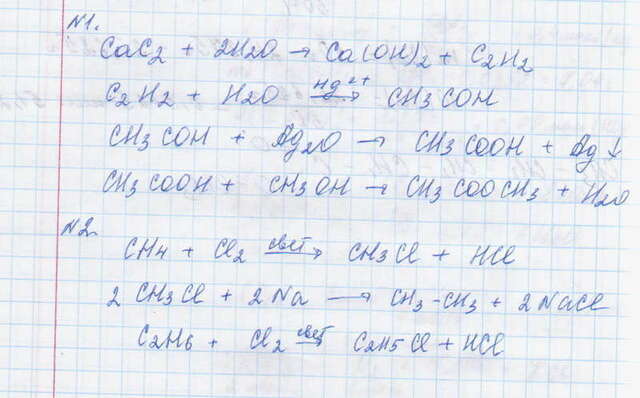 №1.
CaC2 + 2H2O → Ca(OH)2 + C2H2
C2H2 + H2O Hg2+ → CH3COH
CH3COH + Ag2O → CH3COOH + Ag↓
CH3COOH + CH3OH → CH3COOCH3 + H2O
№2.
CH4 + Cl2 свет → CH3Cl + HCl
2CH3Cl + 2Na → CH3-CH3 + 2NaCl
C2H6 + Cl2 свет → C2H5Cl + HCl